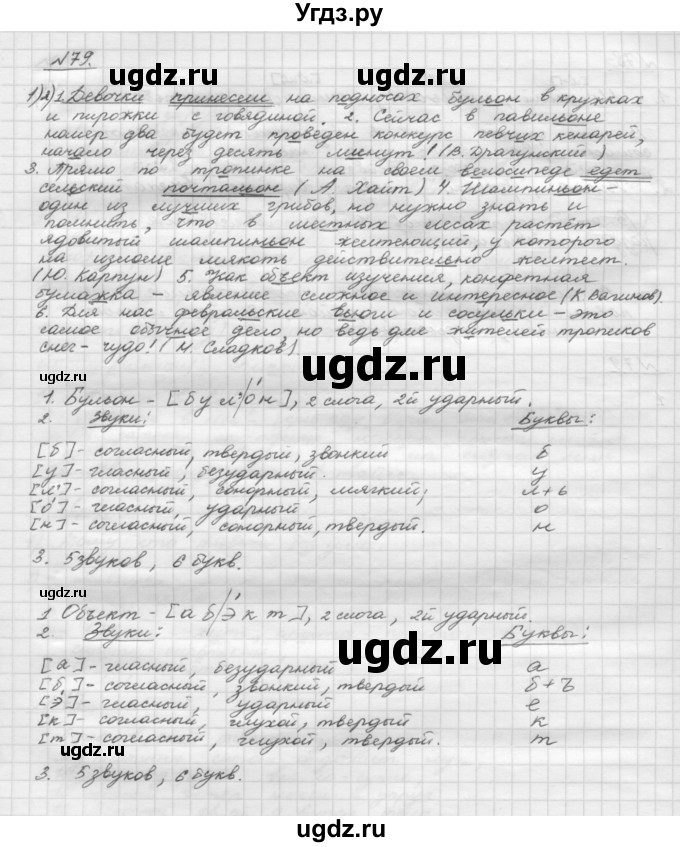 Угдз.ру
№79.
1)А)1. Девочки принесли на подносах бульон в кружках
и пирожки с говядиной. 2. Сейчас в павильоне
номер два будет проведен конкурс певчих кенарей,
начало через десять минут! (В. Драгунский)
3. Прямо по тропинке на своем велосипеде едет
сельский почтальон (А. Хайт) 4. Шампиньон –
один из лучших грибов, но нужно знать и
помнить, что в местных лесах растёт
ядовитый шампиньон желтеющий, у которого
на изломе мякоть действительно желтеет.
(Ю. Карпун) 5. Как объект изучения, конфетная
бумажка – явление сложное и интересное (К. Вагинов).
6. Для нас февральские вьюги и сосульки – это
самое обычное дело, но ведь для жителей тропиков
снег – чудо! (Н. Сладков)
1. Бульон – [б у л'/о́ н], 2 слога, 2й ударный.
2. Звуки: Буквы:
[б] - согласный, твердый, звонкий б
[у] - гласный, безударный. у
[л'] - согласный, сонорный, мягкий; л+ь
[о́] - гласный, ударный о
[н] - согласный, сонорный, твердый. н
3. 5 звуков, 6 букв.
1 Объект – [а б/э́ к т], 2 слога, 2й ударный.
2. Звуки: Буквы:
[а] - гласный, безударный а
[б] - согласный, звонкий, твердый б+ъ
[э́] - гласный, ударный е
[к] - согласный, глухой, твердый к
[т] - согласный, глухой, твердый. т
3. 5 звуков, 6 букв.
ugdz.ru
ugdz.ru
ugdz.ru
ugdz.ru
ugdz.ru
ugdz.ru
ugdz.ru
ugdz.ru
ugdz.ru
ugdz.ru
ugdz.ru
ugdz.ru